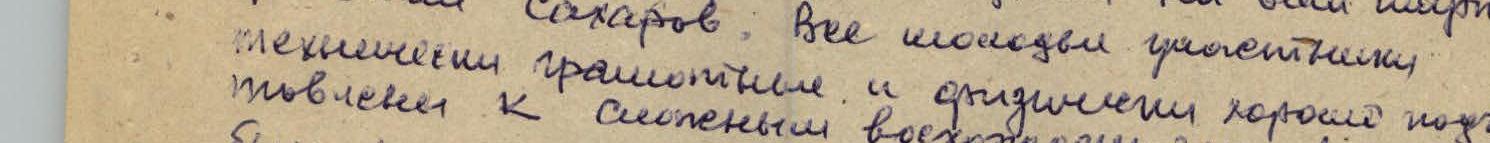 Сахаров. Все молодые участники
технически грамотные и физически хорошо подго
товлены к сложным восхождениям